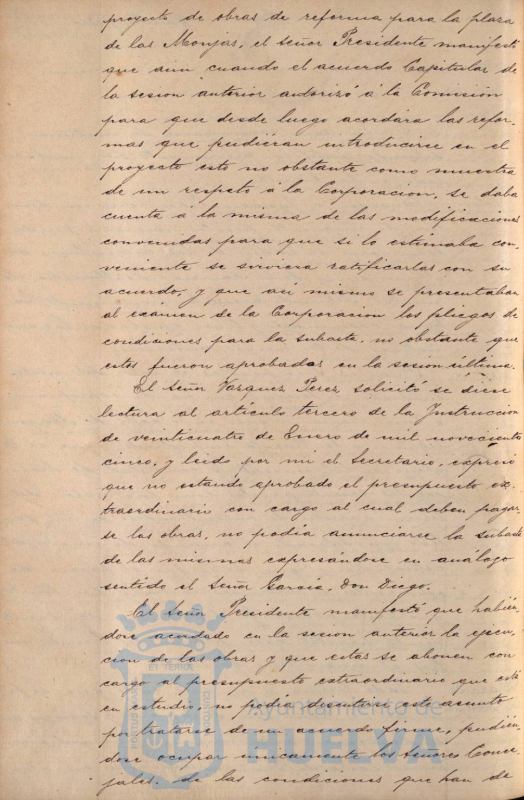 proyecto de obras de reforma para la plaza
de las Monjas, el señor Presidente manifestó
que aún cuando el acuerdo Capitular de
la sesion anterior autorizó á la Comisión
para que desde luego acordára las refor-
mas que pudieran introducirse en el
proyecto esto no obstante como muestra
de un respeto á la Corporacion, se daba
cuenta á la misma de las modificaciones
convenidas para que si lo estimaba con-
veniente se sirviera ratificarlas con su
acuerdo, y que asi mismo se presentaban
al exámen de la Corporacion los pliegos de
condiciones para la subasta, no obstante que
estos fueron aprobadas en la sesion última.
El señor Vazquez Perez solicitó se diese
lectura al articulo tercero de la Instruccion
de veinticuatro de Enero de mil novecientos
cinco, y leido por mi el Secretario, expresó
que no estando aprobado el presupuesto ex-
traordinario con cargo al cual deben pagar-
se las obras, no podia anunciarse la subasta
de las mismas expresándose en análogo
sentido el señor García, Don Diego.
El señor Presidente manifestó que habién-
dose acordado en la sesion anterior la ejecu-
cion de las obras y que estas se abonen con
cargo al presupuesto extraordinario que está
en estudio, no podia discutirse este asunto
por tratarse de un acuerdo firme, pudién-
dose ocupar unicamente los señores Conce-
jales, de las condiciones que han de
Ayuntamiento de
HUELVA